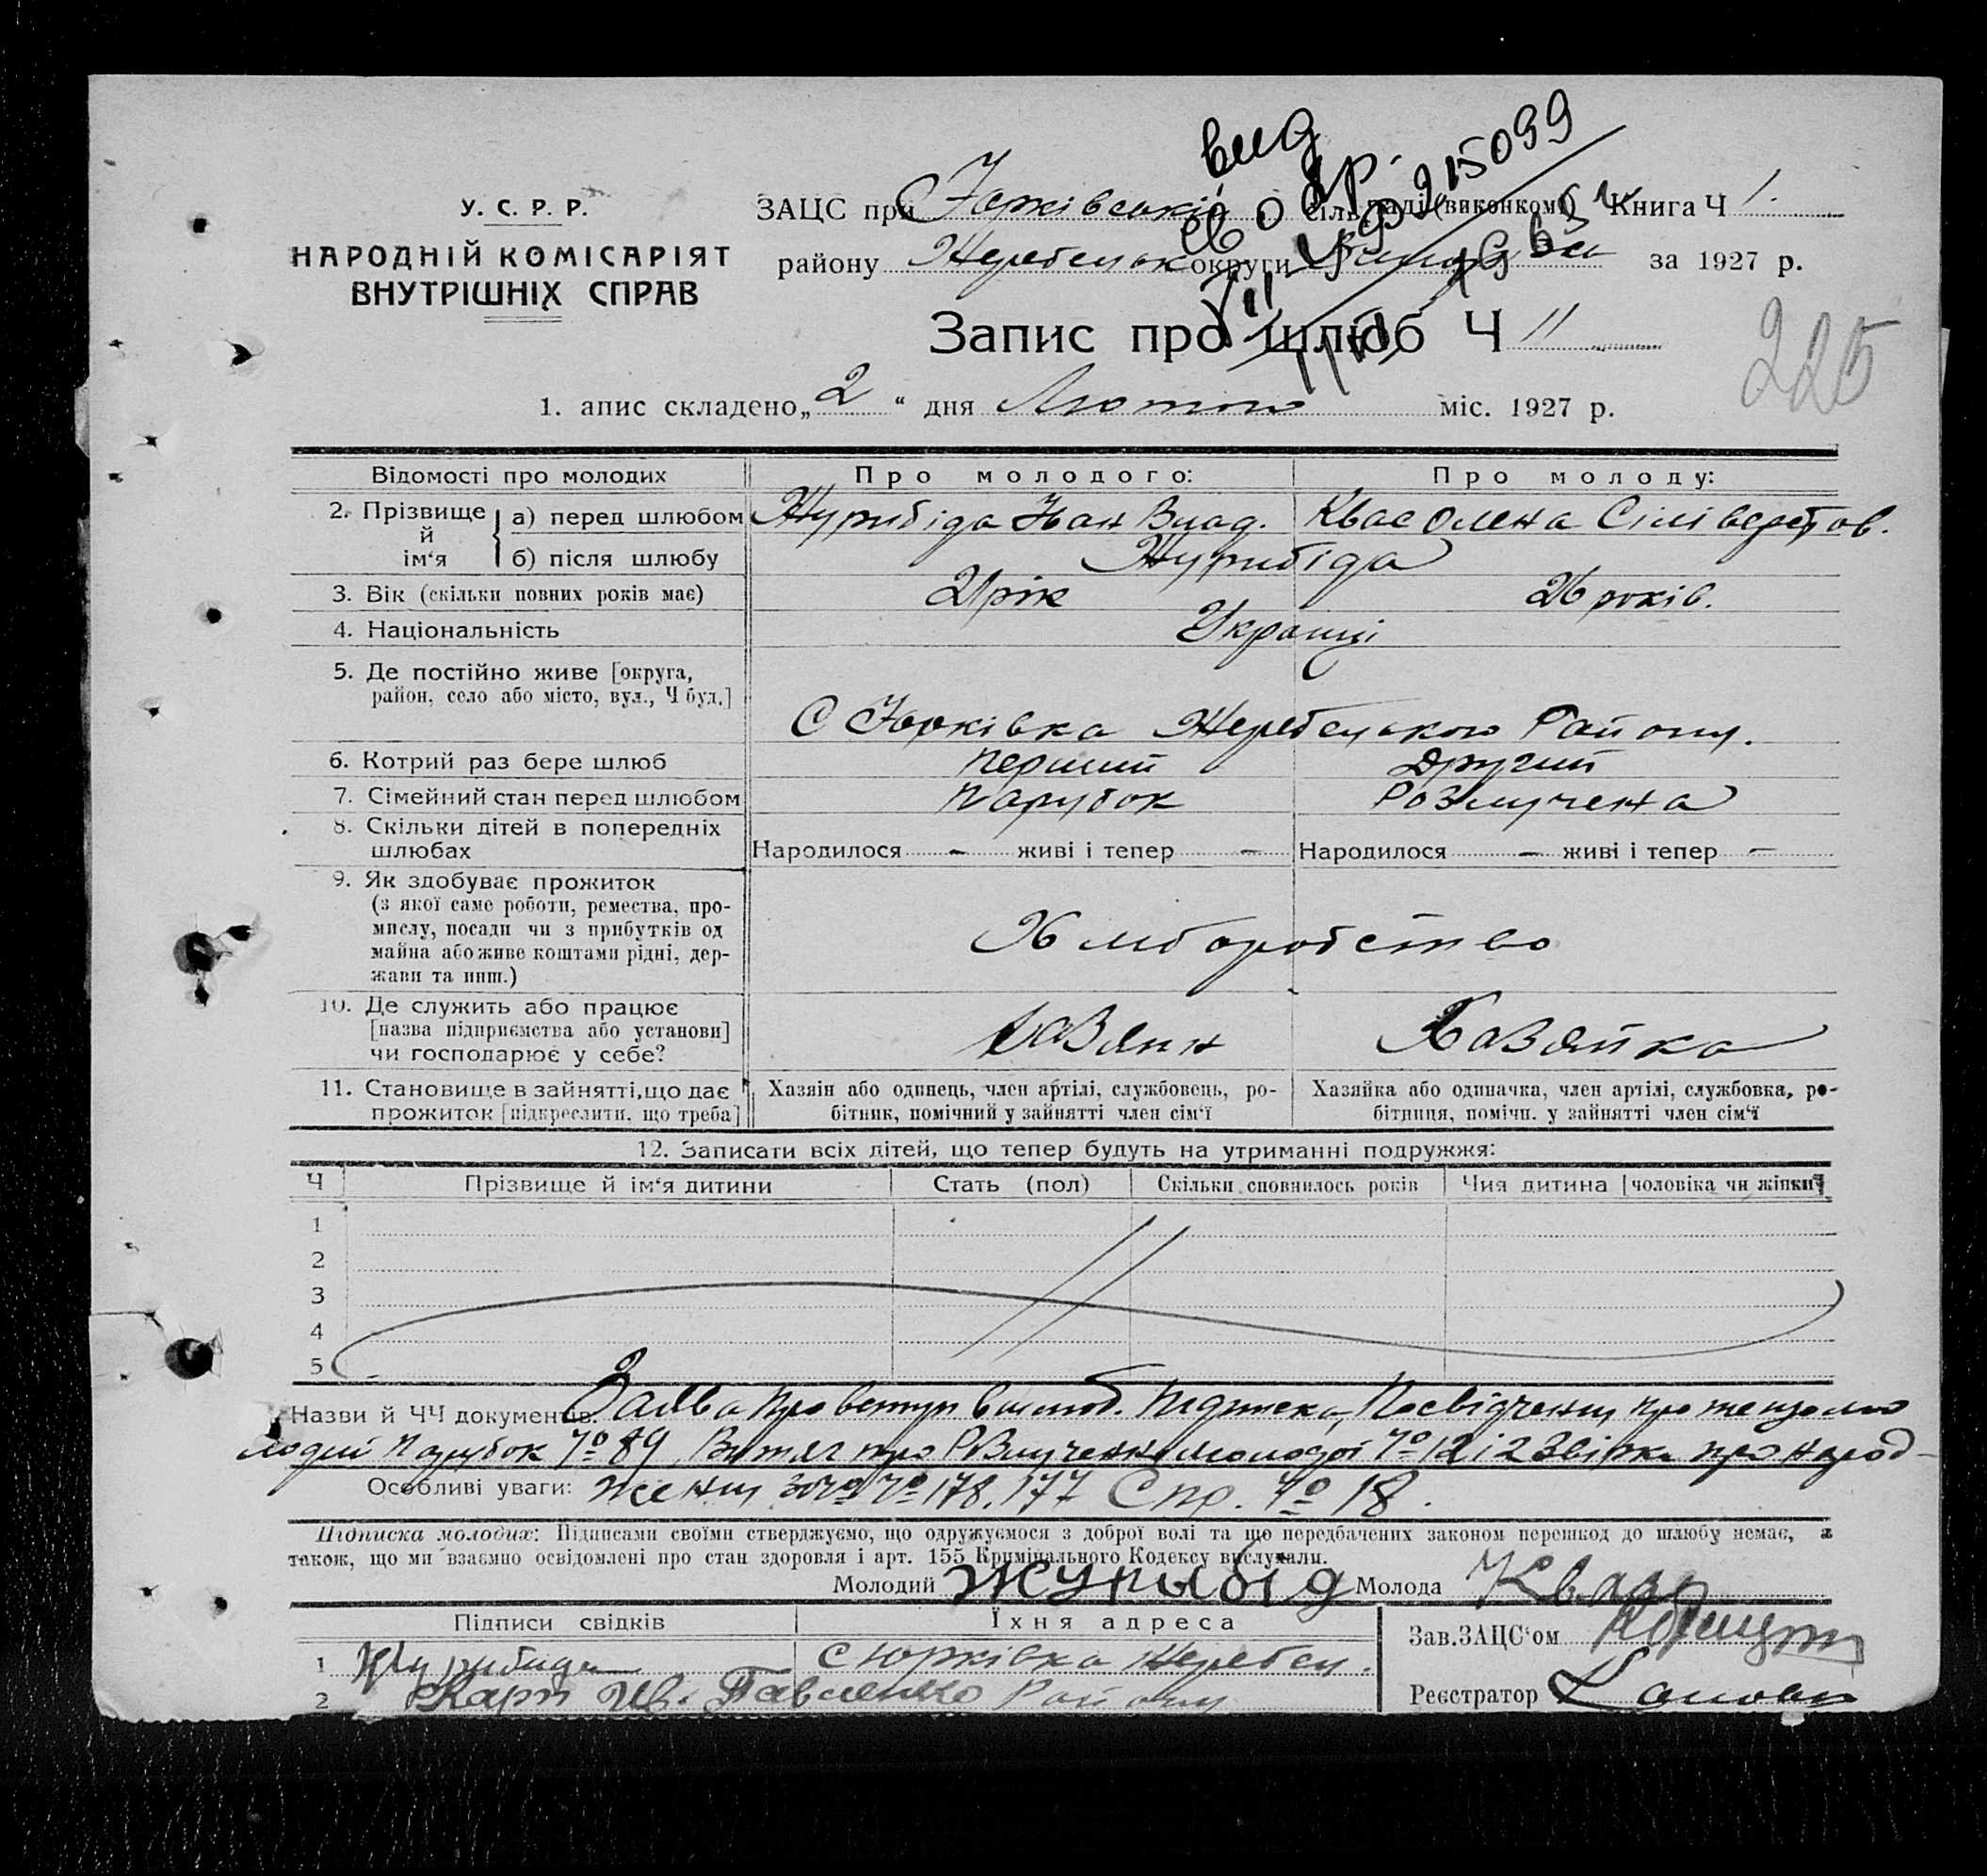 У. С. Р. Р.
НАРОДНІЙ КОМІСАРІЯТ
ВНУТРІШНІХ СПРАВ
вид
215099
ЗАЦС при Юрківській сільраді (виконкомі) Книга Ч 1.
району Жеребецьк округи за 1927 р.
Запис про шлюб Ч 11
225
1. апис складено „ 2 “ дня Лютого міс. 1927 р.
Відомості про молодих Про молодого: Про молоду:
2. Прізвище й ім‘я а) перед шлюбом Журибіда Іван Влад. Квас Олена Сіліверстов.
б) після шлюбу Журибіда
3. Вік (скільки повних років має) 21 рік 26 років.
4. Національність Українці
5. Де постійно живе [округа,
район, село або місто, вул., Ч буд.]
С Юрківка Жеребецького Району.
6. Котрий раз бере шлюб перший Другий
7. Сімейний стан перед шлюбом парубок Розлучена
8. Скільки дітей в попередніх
шлюбах Народилося – живі і тепер – Народилося – живі і тепер –
9. Як здобуває прожиток
(з якої саме роботи, ремества, про-
мислу, посади чи з прибутків од
майна або живе коштами рідні, дер-
жави та инш.)
Хліборобство
10. Де служить або працює
[назва підприємства або установи]
чи господарює у себе?
Хазяйка
11. Становище в зайнятті, що дає
прожиток [підкреслити, що треба]
Хазяін або одинець, член артілі, службовець, ро-
бітник, помічний у зайнятті член сім‘ї
Хазяйка або одиначка, член артілі, службовка, ро-
бітниця, помічн. у зайнятті член сім‘ї
12. Записати всіх дітей, що тепер будуть на утриманні подружжя:
Ч Прізвище й ім‘я дитини Стать (пол) Скільки сповнилось років Чия дитина [чоловіка чи жінки]
1
2
3
4
5
Назви й ЧЧ документів: Заява про вступ в шлюб. Підписка, Посвідчення про те що мо
лодий парубок № 89, Витяг про Розлучення молодої № 12 і 2 Звірки про народ-
Особливі уваги: ження № 178, 177 Спр. № 18.
Підписка молодих: Підписами своїми стверджуємо, що одружуємося з доброї волі та що передбачених законом перешкод до шлюбу немає, а
також, що ми взаємно освідомлені про стан здоровля і арт. 155 Кримінального Кодексу вислухали.
Молодий Журибід Молода Квас
Підписи свідків Їхня адреса
Зав.ЗАЦС‘ом
1 Журибида с Юрківка Жеребец.
2 Карп Ив. Павленко Району
Реєстратор